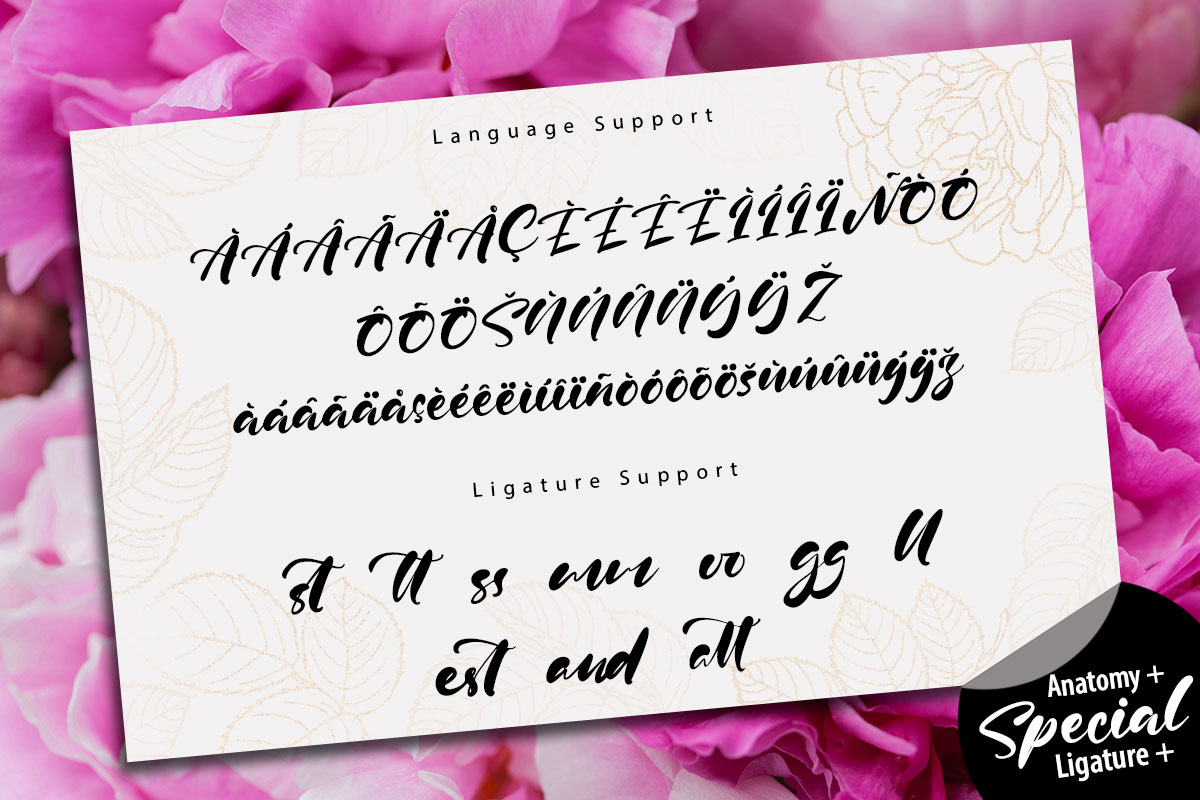 Language Support
ÀÁÂÃÄÅÇÈÉÊËÌÍÎÏÑÒÓ
ÔÕÖŠÙÚÛÜÝŸŽ
àáâãäåçèéêëìíîïñòóôõöšùúûüýÿž
Ligature Support
st tt ss oo gg ll
est and att
Anatomy +
Special
Ligature +